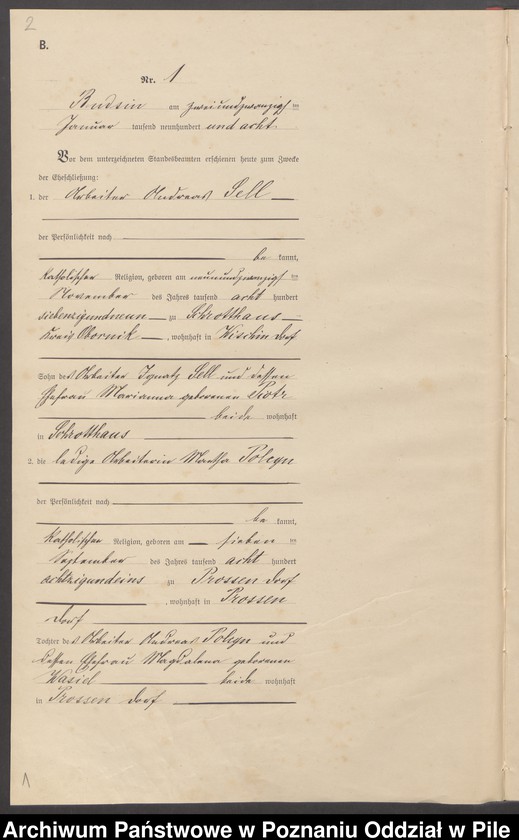 2
B.
Nr. 1
Budsin am zweiundzwanzigsten
Januar tausend neunhundert und acht.
Vor dem unterzeichneten Standesbeamten erschienen heute zum Zwecke
der Eheschließung:
1. der Arbeiter Andreas Sell
der Persönlichkeit nach
be kannt,
katholischer Religion, geboren am neunundzwanzigsten
November des Jahres tausend acht hundert
siebenzigundneun zu Schrotthaus
Kreis Obornik, wohnhaft in Wischin Dorf
Sohn des Arbeiter Ignatz Sell und dessen
Ehefrau Marianna geborenen Piotr
beide wohnhaft
in Schrotthaus
2. die ledige Arbeiterin Martha Polcyn
der Persönlichkeit nach
be kannt,
katholischer Religion, geboren am sieben ten
September des Jahres tausend acht hundert
achtzigundeins zu Prossen Dorf
, wohnhaft in Prossen
Dorf
Tochter des Arbeiter Andreas Polcyn und
dessen Ehefrau Magdalena geborenen
beide wohnhaft
in Prossen Dorf
1
Archiwum Państwowe w Poznaniu Oddział w Pile